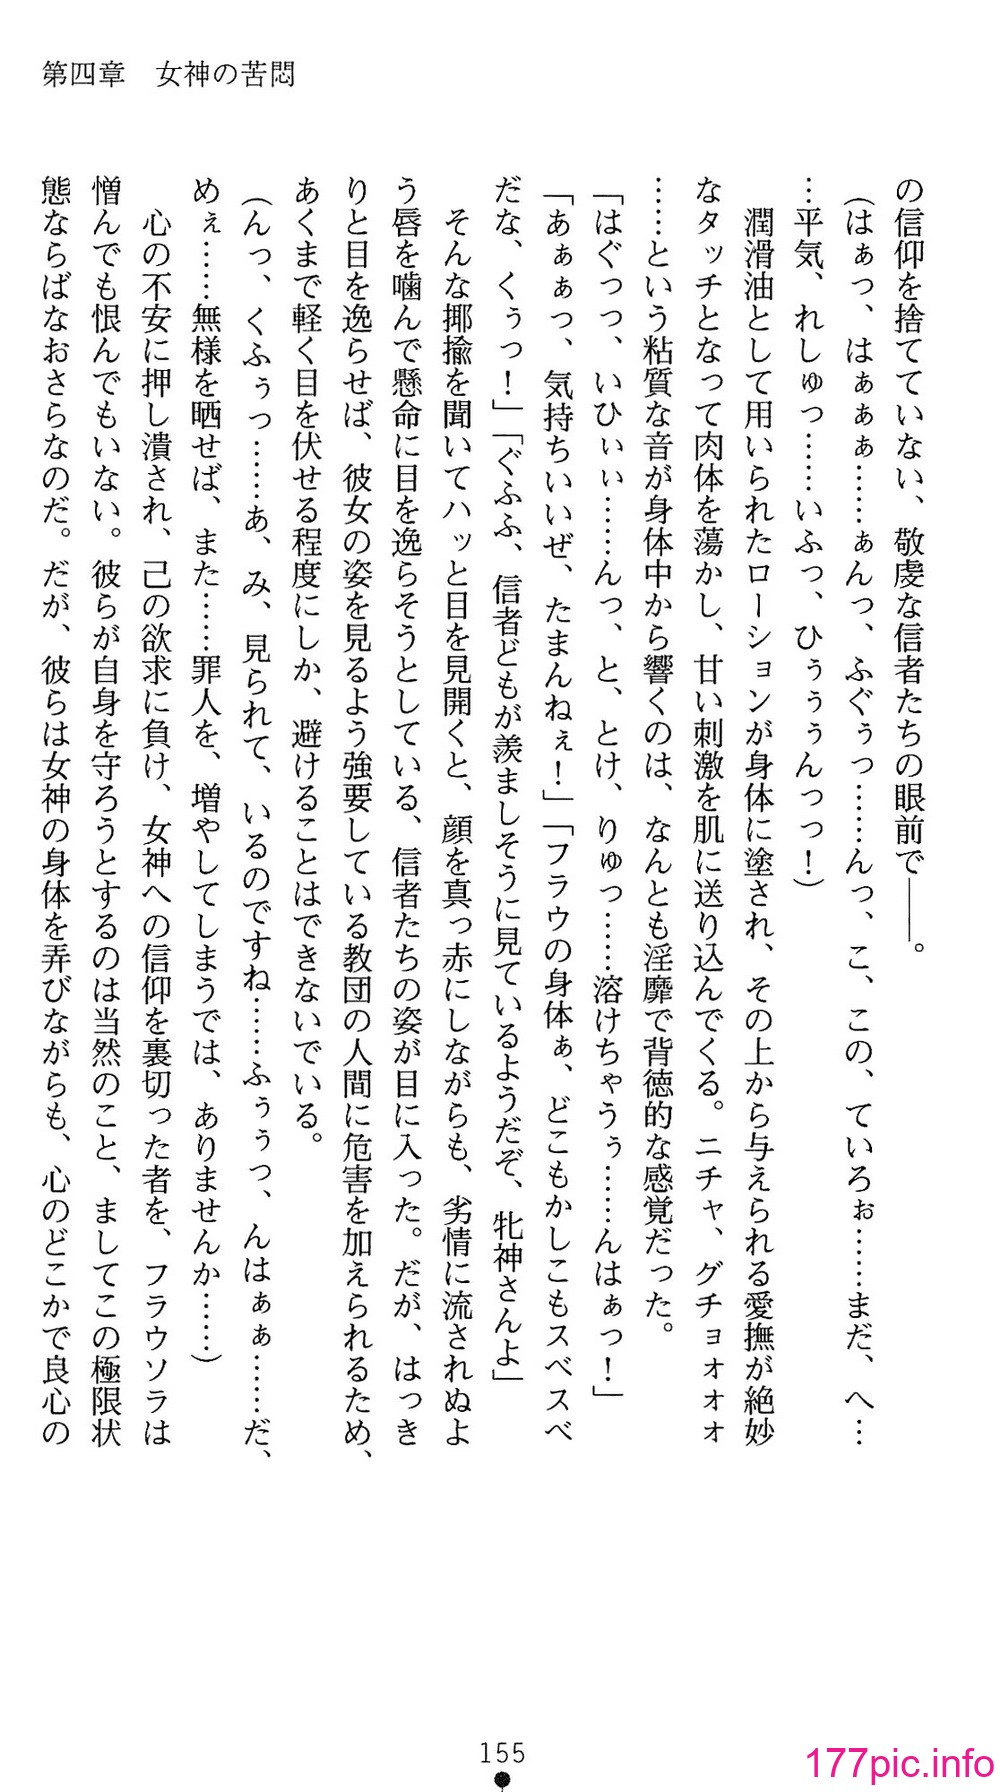 第四章　女神の苦悶
の信仰を捨てていない、敬虔な信者たちの眼前で――。
(はぁっ、はぁぁぁ……ぁんっ、ふぐぅっ……んっ、こ、この、ていろぉ……まだ、へ…
…平気、れしゅっ……いふっ、ひぅぅぅんっっ！)
　潤滑油として用いられたローションが身体に塗され、その上から与えられる愛撫が絶妙
なタッチとなって肉体を蕩かし、甘い刺激を肌に送り込んでくる。ニチャ、グチョォォォ
……という粘質な音が身体中から響くのは、なんとも淫靡で背徳的な感覚だった。
「はぐっっ、いひぃぃ……んっ、と、とけ、りゅっ……溶けちゃうぅ……んはぁっ！」
「あぁぁっ、気持ちいいぜ、たまんねぇ！」「フラウの身体ぁ、どこもかしこもスベスベ
だな、くぅっ！」「ぐふふ、信者どもが羨ましそうに見ているようだぞ、牝神さんよ」
　そんな揶揄を聞いてハッと目を見開くと、顔を真っ赤にしながらも、劣情に流されぬよ
う唇を噛んで懸命に目を逸らそうとしている、信者たちの姿が目に入った。だが、はっき
りと目を逸らせば、彼女の姿を見るよう強要している教団の人間に危害を加えられるため、
あくまで軽く目を伏せる程度にしか、避けることはできないでいる。
(んっ、くふぅっ……あ、み、見られて、いるのですね……ふぅぅっ、んはぁぁ……だ、
めぇ……無様を晒せば、また……罪人を、増やしてしまうでは、ありませんか……)
　心の不安に押し潰され、己の欲求に負け、女神への信仰を裏切った者を、フラウソラは
憎んでも恨んでもいない。彼らが自身を守ろうとするのは当然のこと、ましてこの極限状
態ならばなおさらなのだ。だが、彼らは女神の身体を弄びながらも、心のどこかで良心の
155
177pic.info